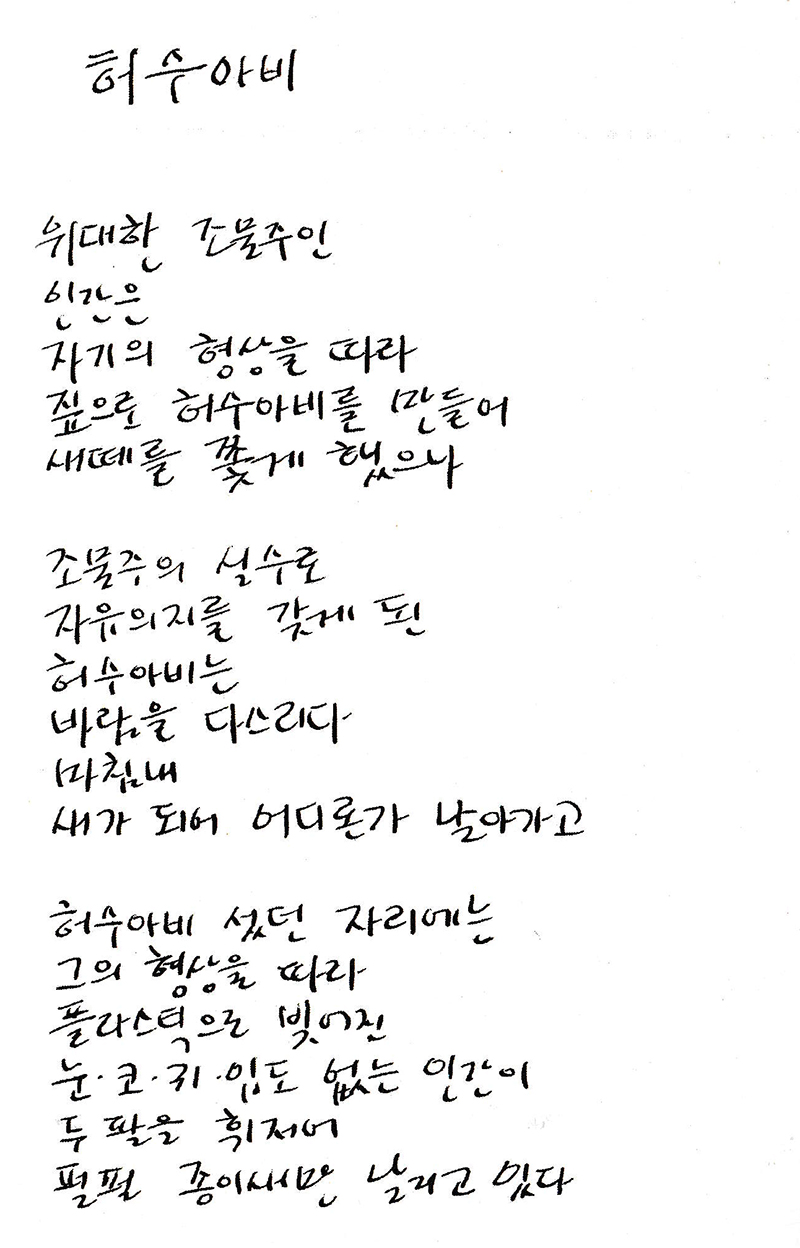 허수아비
위대한 조물주인
인간은
자기의 형상을 따라
짚으로 허수아비를 만들어
새떼를 쫓게 했으나
조물주의 실수로
자유의지를 갖게 된
허수아비는
바람을 다스리다
마침내
새가 되어 어디론가 날아가고
허수아비 섰던 자리에는
그의 형상을 따라
플라스틱으로 빚어진
눈·코·귀·입도 없는 인간이
두 팔을 휘저어
펄펄 종이새만 날리고 있다